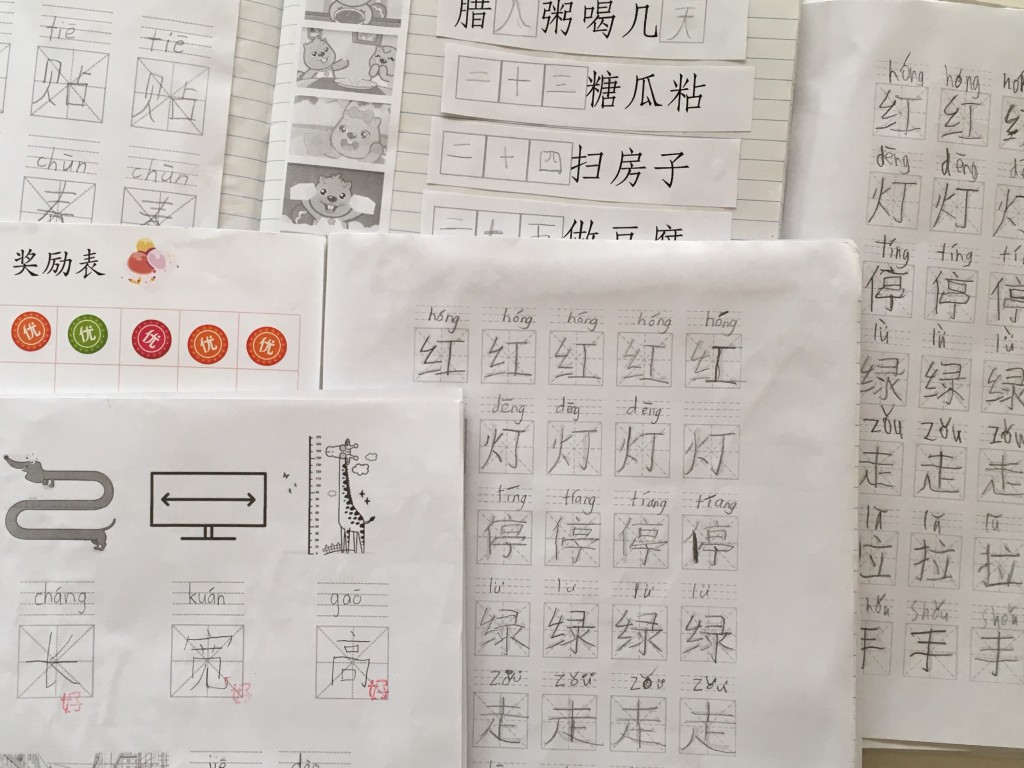 tiē tiē
贴 贴
chūn chūn
春 春
腊八粥喝几天
二十三糖瓜粘
二十四扫房子
二十五做豆腐
奖励表
优 优 优 优 优
cháng kuán gaō
长 宽 高
好 好 好
hóng hóng hóng hóng hóng
红 红 红 红 红
dēng dēg dēng
灯 灯 灯 灯
tíng tíang tíang tíang
停 停 停 停
lǜ
绿 绿 绿 绿
zǒu
走 走 走 走
hóng hóng
红 红 红
dēng dēng
灯 灯 灯
tíng tíng
停 停 停
lǜ lǜ lǜ
绿 绿 绿
zǒu zǒu zǒu
走 走 走
拉 拉 拉
shǒu shǒu
手 手 手